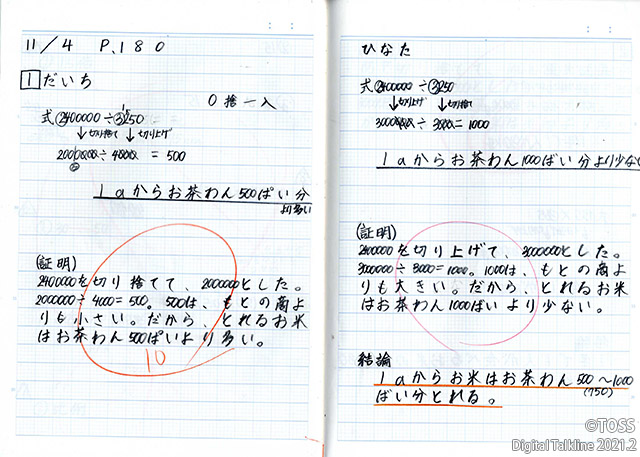 11/4 P.180
1 だいち
0捨一入
式 2400000÷3250
↓切り捨て ↓切り上げ
2000000÷4000 = 500
1aからお茶わん500ぱい分
より多い
(証明)
2400000を切り捨てて、2000000とした。
2000000÷4000=500。500は、もとの商よ
りも小さい。だから、とれるお米
はお茶わん500ぱいより多い。
10
ひなた
式 2400000÷3250
↓切り上げ ↓切り捨て
3000000÷3000=1000
1aからお茶わん1000ばい分より少ない
(証明)
2400000を切り上げて、3000000とした。
3000000÷3000=1000。1000は、もとの商よ
りも大きい。だから、とれるお米
はお茶わん1000ばいより少ない。
結論
1aからお米はお茶わん500~1000
ばい分とれる。
(750)
©TOSS
Digital Talkline 2021.2